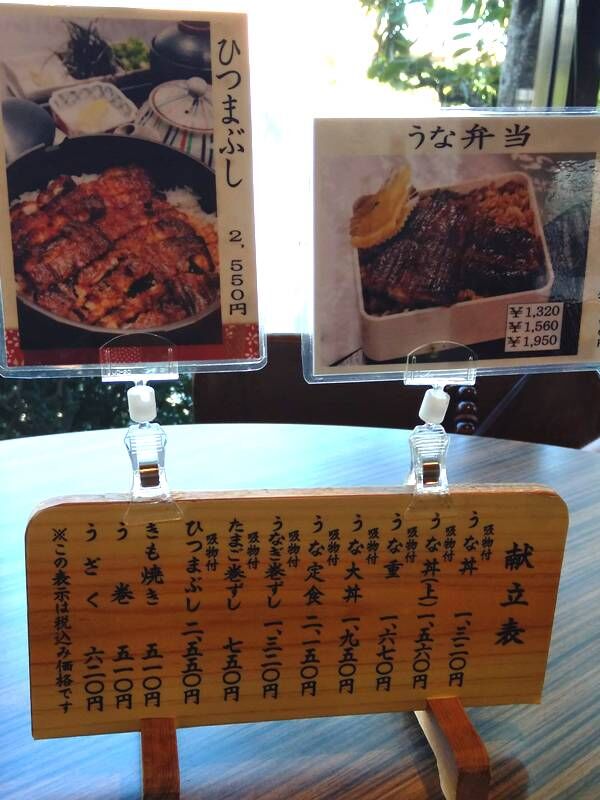 ひつまぶし
2,550円
うな弁当
¥1,320
¥1,560
¥1,950
献立表
吸物付
うな丼 一、三二〇円
吸物付
うな丼(上) 一、五六〇円
吸物付
うな重 一、六七〇円
吸物付
うな大丼 一、九五〇円
うな定食 二、一五〇円
吸物付
うなぎ巻ずし 一、三二〇円
吸物付
たまご巻ずし 七五〇円
ひつまぶし 二、五五〇円
きも焼き 五一〇円
う巻 五一〇円
うざく 六二〇円
※この表示は税込み価格です